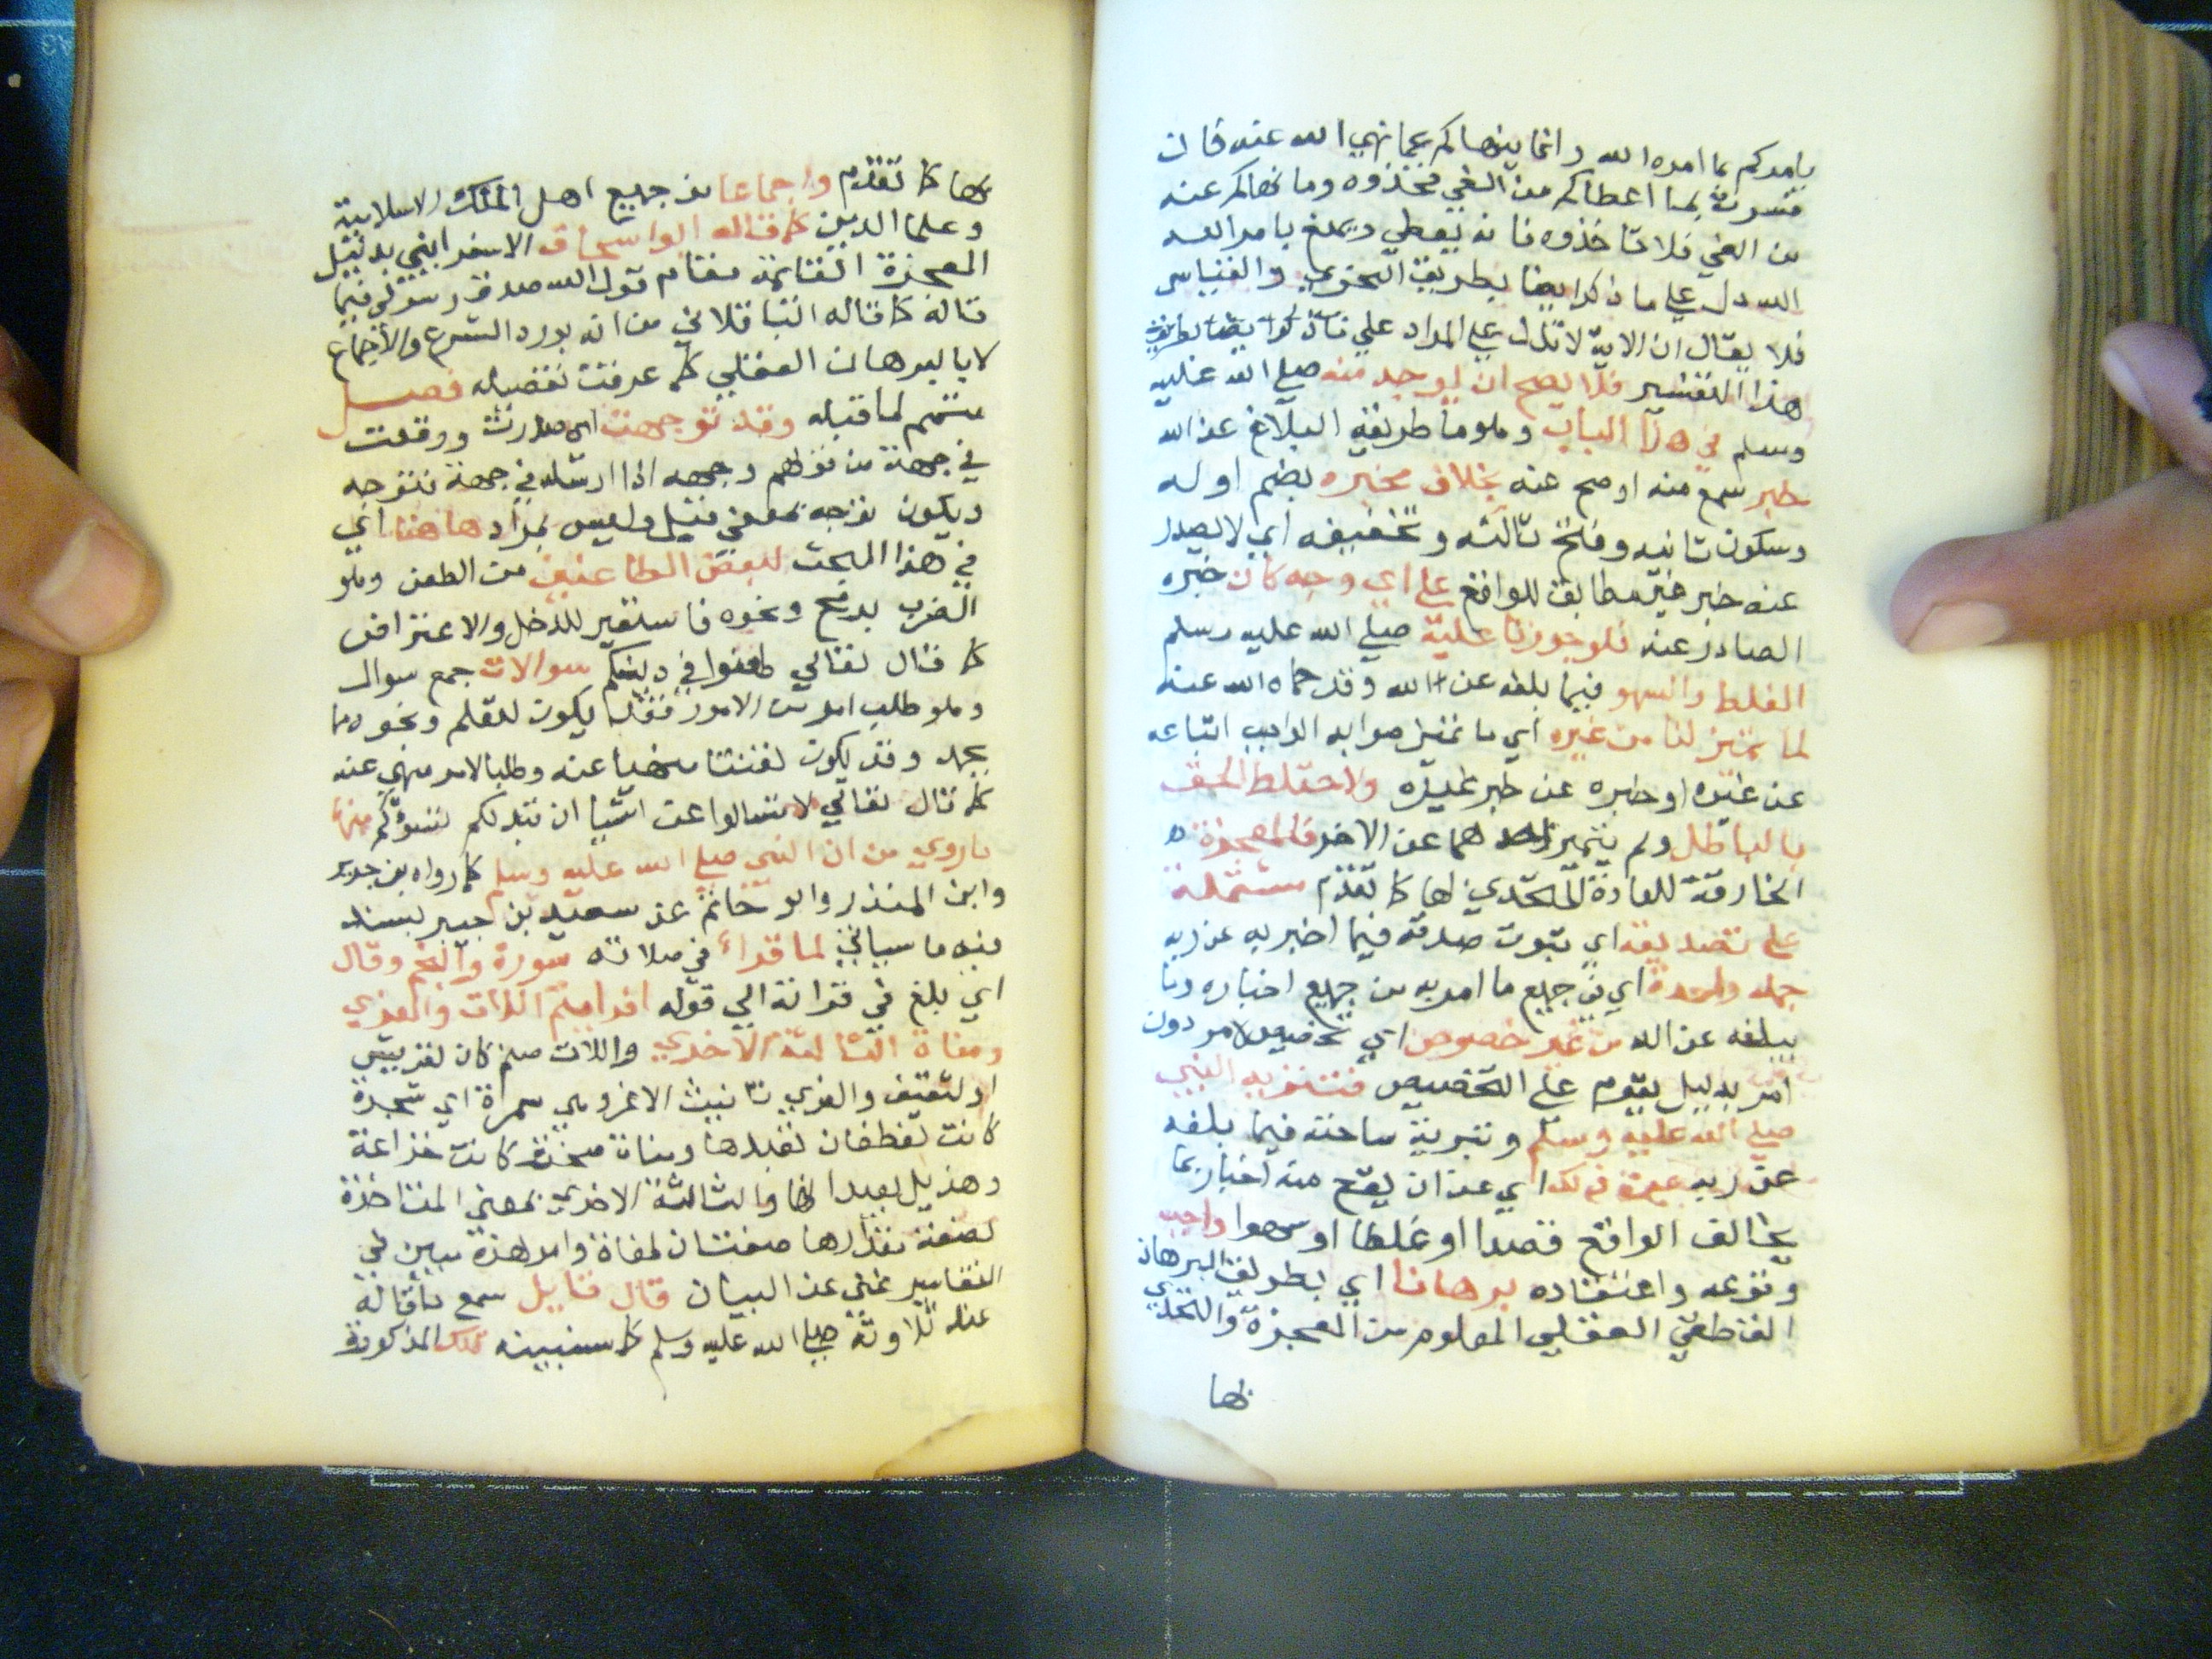 يامركم بما امره الله وانما ينهاكم عما نهي الله عنه فان
فسرت بما اعطاكم من الفي فخذوه وما نهاكم عنه
من الفي فلا تاخذوه فانه يعطي ويمنع بامر الله
الله دل علي ما ذكر ايضا بطريق التحري والقياس
فلا يقال ان الاية لا تدل علي المراد علي ايضا بطريق
هذا التفسير فلا يصح ان يوجد منه صلي الله عليه
وسلم في هذا الباب وهو ما طريقه البلاغ عن الله
خبر سمع منه او صح عنه بخلاف مخبره بضم اوله
وسكون ثانيه وفتح ثالثه وتخفيفه اي لا يصدر
عنه خبر غير مطابق للواقع علي اي وجه كان خبره
الصادر عنه فلو جوزنا عليه صلي الله عليه وسلم
الغلط والسهو فيما بلغه عن الله وقد حماه الله عنه
لما تميز لنا من غيره اي ما تميز صوابه الواجب اتباعه
عن غيره او خبره عن خبر غيره ولاختلط الحق
بالباطل ولم يتميز احدهما عن الاخر فالمعجزة
الخارقة للعادة المتحدي بها كما تقدم مشتملة
علي تصديقه اي ثبوت صدقه فيما اخبر به عن ربه
جملة واحدة اي في جميع ما امر به من جميع اخباره وما
يبلغه عن الله من غير خصوص اي تخصيص لامر دون
امر بدليل يقوم علي التخصيص فتنزيه النبي
صلي الله عليه وسلم وتبرية ساحته فيما بلغه
عن ربه عن ذلك اي عن ان يقع منه اخبار بما
يخالف الواقع قصدا او غلطا او سهوا واجب
وقوعه واعتقاده برهانا اي بطريق البرهان
القطعي العقلي المعلوم من المعجزة والتحدي
بها
بها كما تقدم واجماعا من جميع اهل الملة الاسلامية
وعلما الدين كما قاله ابو اسحاق الاسفرايني بدليل
المعجزة القائمة مقام قول الله صدق رسولي فيما
قاله كما قاله الباقلاني من انه بورد الشرع والاجماع
لا بالبرهان العقلي كما عرفت تفصيله فصل
متمم لما قبله وقد توجهت اي صدرت ووقعت
في جهة من قولهم وجهه اذا ارسله في جهة فتوجه
ويكون توجه بمعني قبل وليس بمراد هاهنا اي
في هذا المبحث لبعض الطاعنين من الطعن وهو
الضرب برمح ونحوه فاستعير للدخل والاعتراض
كما قال تعالي طعنوا في دينكم سوالات جمع سوال
وهو طلب امر من الامور فقد يكون للتعلم ونحوه مما
يحمد وقد يكون تعنتا منهيا عنه وطلبا لامر منهي عنه
كما قال تعالي لا تسالوا عن اشيا ان تبد لكم تسؤكم منها
ما روي من ان النبي صلي الله عليه وسلم كما رواه بن جرير
وابن المنذر وابو حاتم عن سعيد بن جبير بسند
فيه ما سياتي لما قرا في صلاته سورة والنجم وقال
اي بلغ في قرانه الي قوله افرايتم اللات والعزي
ومناة الثالثة الاخري واللات صنم كان لقريش
او لثقيف والعزي تانيث الاعز وهي سمرة اي شجرة
كانت لغطفان تعبدها ومناة صخرة كانت خزاعة
وهذيل تعبدانها والثالثة الاخري بمعني المتاخرة
لضعة مقدارها صفتان لمناة وامر هذه مبين في
التفاسير غني عن البيان قال قايل سمع ما قاله
عند تلاوته صلي الله عليه وسلم كما سنبينه تلك المذكورة